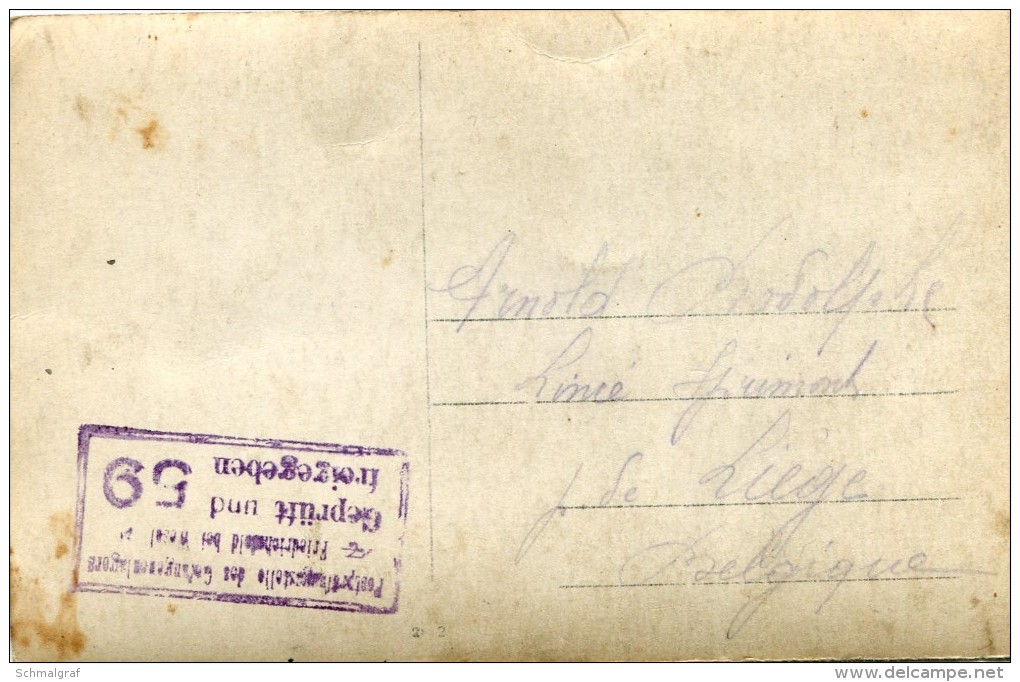 Arnold Rodolphe
Lincé Sprimont
p de Liége
Belgique
Postprüfungsstelle des Gefangenenlagers
Friedrichsfeld bei Wesel
Geprüft und
freigegeben
59
2 2
Schmalgraf
delcampe.net